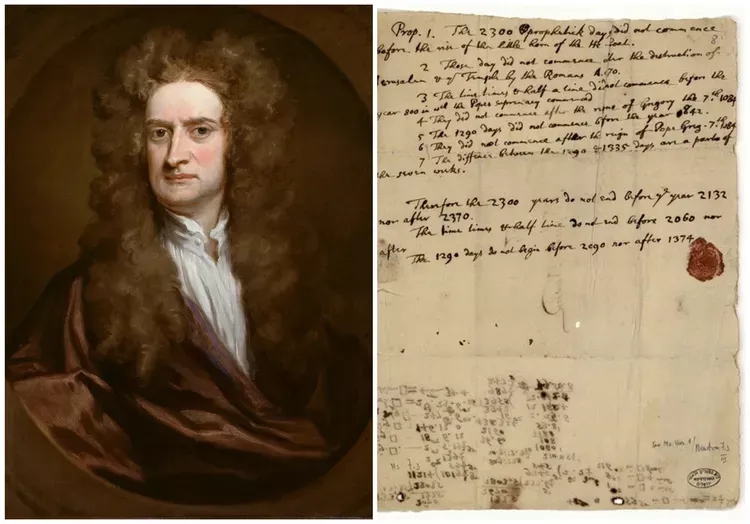 8
Prop. 1. The 2300 prophetick days did not commence
before the rise of the little horn of the He Goat.
2 Those day did not commence after the destruction of
Jerusalem & ye Temple by the Romans A. 70.
3 The time times & half a time did not commence before the
year 800 in wch the Popes supremacy commenced
4 They did not commence after the reigne of Gregory the 7th. 1084
5 The 1290 days did not commence before the year 842.
6 They did not commence after the reign of Pope Greg. 7th. 1084
7 The diffence between the 1290 & 1335 days are a parts of
the seven weeks.
Therefore the 2300 years do not end before ye year 2132
nor after 2370.
The time times & half time do not end before 2060 nor
after
The 1290 days do not begin before 2090 nor after 1374